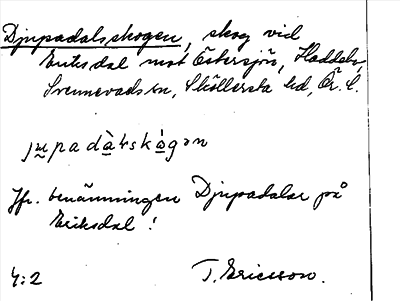 Djupadalsskogen, skog vid
Eriksdal mot Östersjön, Haddebo,
Svennevads sn, Sköllersta hd, Ör. l.
jupadàlskógən
Jfr. benämningen Djupadalar på
Eriksdal!
4:2 T. Ericsson.